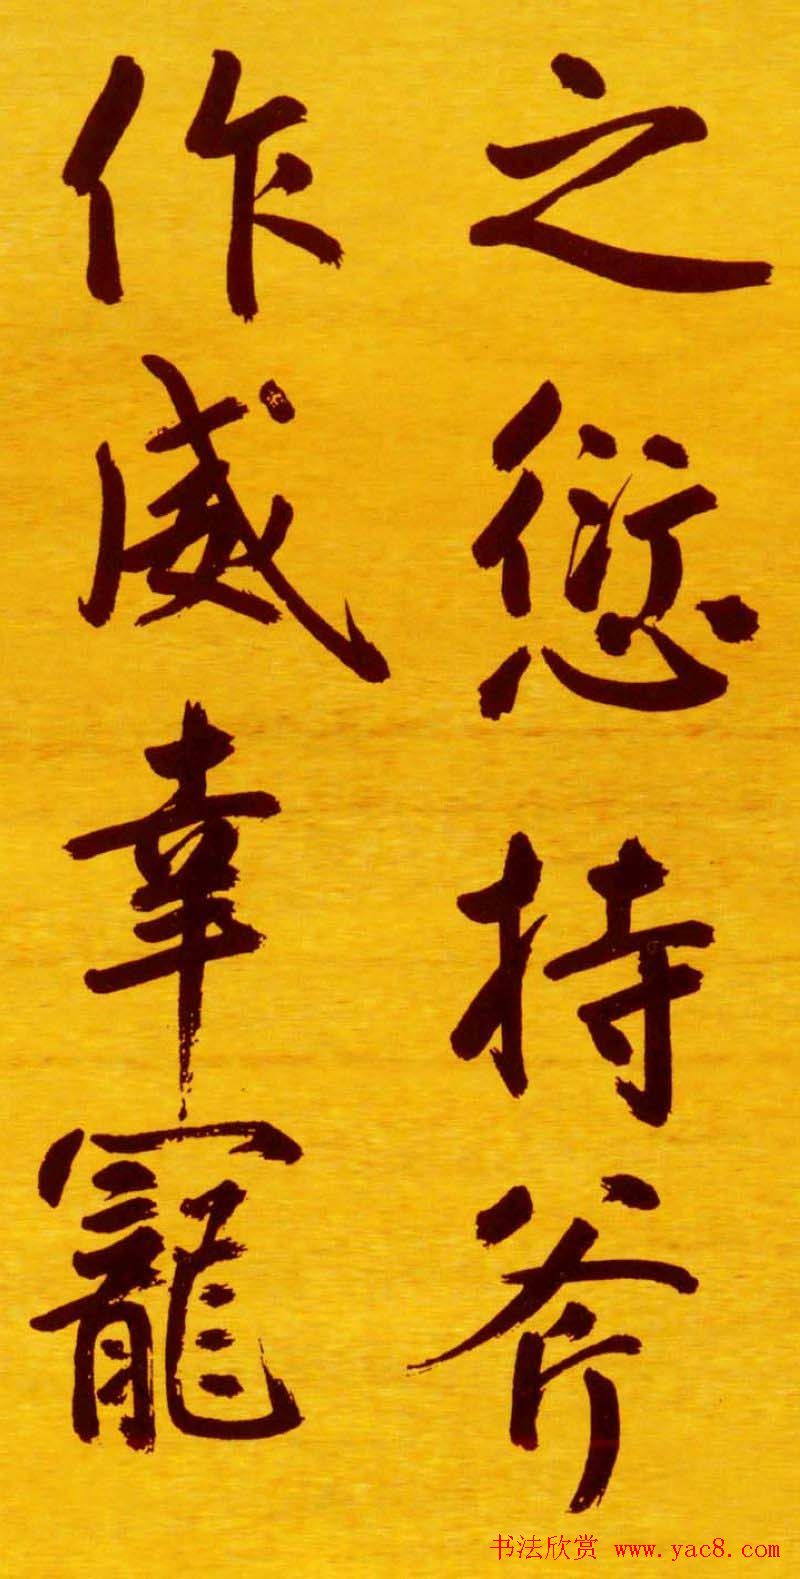 之愆持斧
作威幸寵
书法欣赏 www.yac8.com